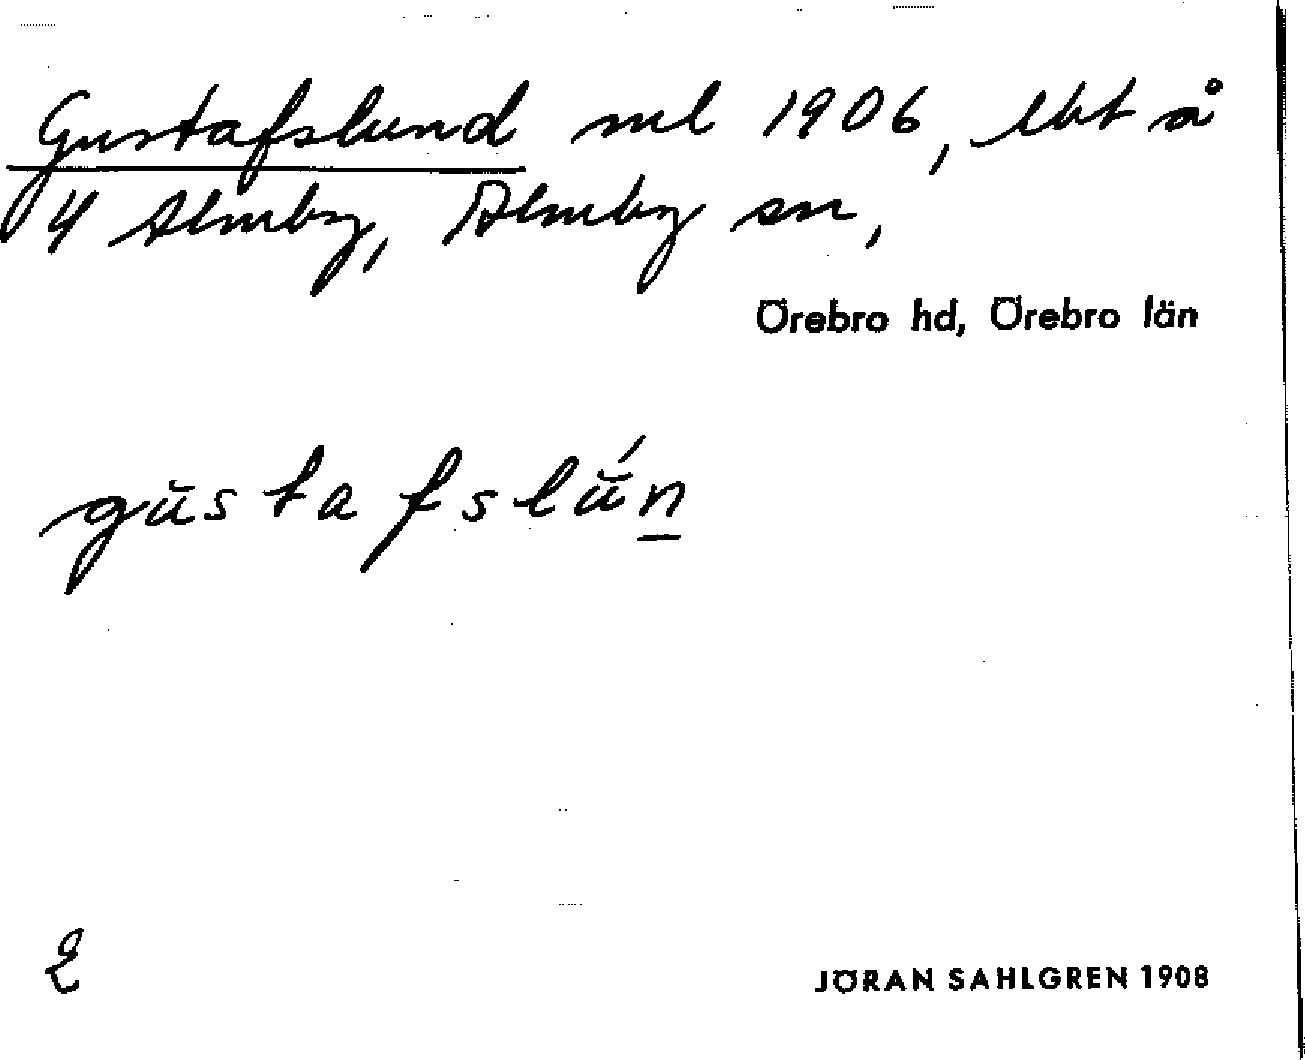 Gustafslund ml 1906, lht å
4 Almby, Almby sn,
Örebro hd, Örebro län
gŭstafslŭ́n̲
E
JÖRAN SAHLGREN 1908